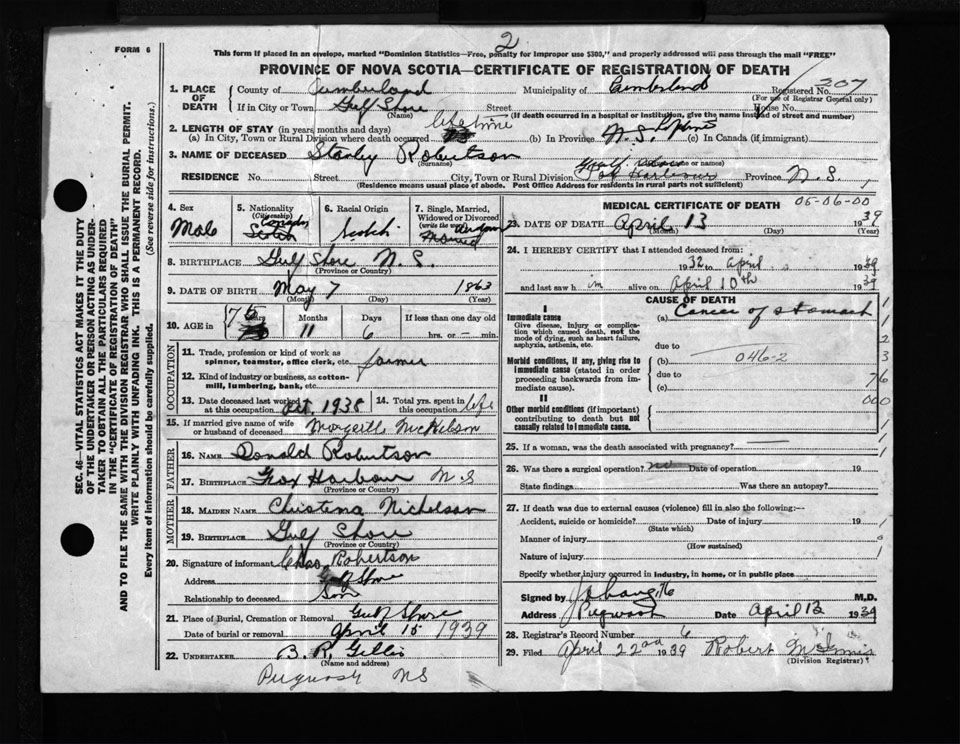 FORM 6
2
This form if placed in an envelope, marked "Dominion Statistics—Free, penalty for improper use $300," and properly addressed will pass through the mail "FREE"
PROVINCE OF NOVA SCOTIA—CERTIFICATE OF REGISTRATION OF DEATH
SEC. 46—VITAL STATISTICS ACT MAKES IT THE DUTY
OF THE UNDERTAKER OR PERSON ACTING AS UNDER-
TAKER TO OBTAIN ALL THE PARTICULARS REQUIRED
IN THE "CERTIFICATE OF REGISTRATION OF DEATH"
AND TO FILE THE SAME WITH THE DIVISION REGISTRAR WHO SHALL ISSUE THE BURIAL PERMIT.
WRITE PLAINLY WITH UNFADING INK. THIS IS A PERMANENT RECORD.
Every item of information should be carefully supplied. (See reverse side for instructions.)
1. PLACE OF DEATH County of Cumberland Municipality of Cumberland Registered No. 207
(For use of Registrar General only)
If in City or Town Gulf Shore Street House No.
(Name) (If death occurred in a hospital or institution, give the name instead of street and number)
2. LENGTH OF STAY (in years, months and days)
(a) In City, Town or Rural Division where death occurred lifetime (b) In Province N.S. (c) In Canada (if immigrant)
3. NAME OF DECEASED Stanley Robertson
(Surname) (or names)
RESIDENCE No. Street City, Town or Rural Division Gulf Shore Fox Harbour Province N.S.
(Residence means usual place of abode. Post Office Address for residents in rural parts not sufficient)
4. Sex Male
5. Nationality (Citizenship) Canadian Scotch
6. Racial Origin Scotch
7. Single, Married, Widowed or Divorced (write the word) Widower Married
8. BIRTHPLACE Gulf Shore N.S.
(Province or Country)
9. DATE OF BIRTH May 7 1863
(Month) (Day) (Year)
10. AGE in 75 Years 11 Months 6 Days If less than one day old hrs. or — min.
OCCUPATION
11. Trade, profession or kind of work as spinner, teamster, office clerk, etc. farmer
12. Kind of industry or business, as cotton-mill, lumbering, bank, etc.
13. Date deceased last worked at this occupation Oct. 1938 14. Total yrs. spent in this occupation life
15. If married give name of wife or husband of deceased
FATHER
16. NAME Donald Robertson
17. BIRTHPLACE Fox Harbour N S
(Province or Country)
MOTHER
18. MAIDEN NAME Christena Nicholson
19. BIRTHPLACE Gulf Shore
(Province or Country)
20. Signature of informant Chas Robertson
Address Gulf Shore
Relationship to deceased Son
21. Place of Burial, Cremation or Removal Gulf Shore
Date of burial or removal April 15 1939
22. UNDERTAKER B. R. Gillis
(Name and address)
Pugwash NS
MEDICAL CERTIFICATE OF DEATH 05-06-00
23. DATE OF DEATH April 13 1939
(Month) (Day) (Year)
24. I HEREBY CERTIFY that I attended deceased from:
1932 to April 1939
and last saw him alive on April 10th 1939
CAUSE OF DEATH
I
Immediate cause (a) Cancer of stomach
Give disease, injury or complication which caused death, not the mode of dying, such as heart failure, asphyxia, asthenia, etc.
due to
Morbid conditions, if any, giving rise to immediate cause (stated in order proceeding backwards from immediate cause). (b) 046-2
due to
(c)
II
Other morbid conditions (if important) contributing to death but not causally related to immediate cause.
1
1
2
3
76
000
25. If a woman, was the death associated with pregnancy?
26. Was there a surgical operation? no Date of operation 19
State findings Was there an autopsy?
27. If death was due to external causes (violence) fill in also the following:—
Accident, suicide or homicide? Date of injury 19
(State which)
Manner of injury
(How sustained)
Nature of injury
Specify whether injury occurred in industry, in home, or in public place
Signed by M.D.
Address Pugwash Date April 13 1939
28. Registrar's Record Number 6
29. Filed April 22nd 1939 Robert McInnis
(Division Registrar)